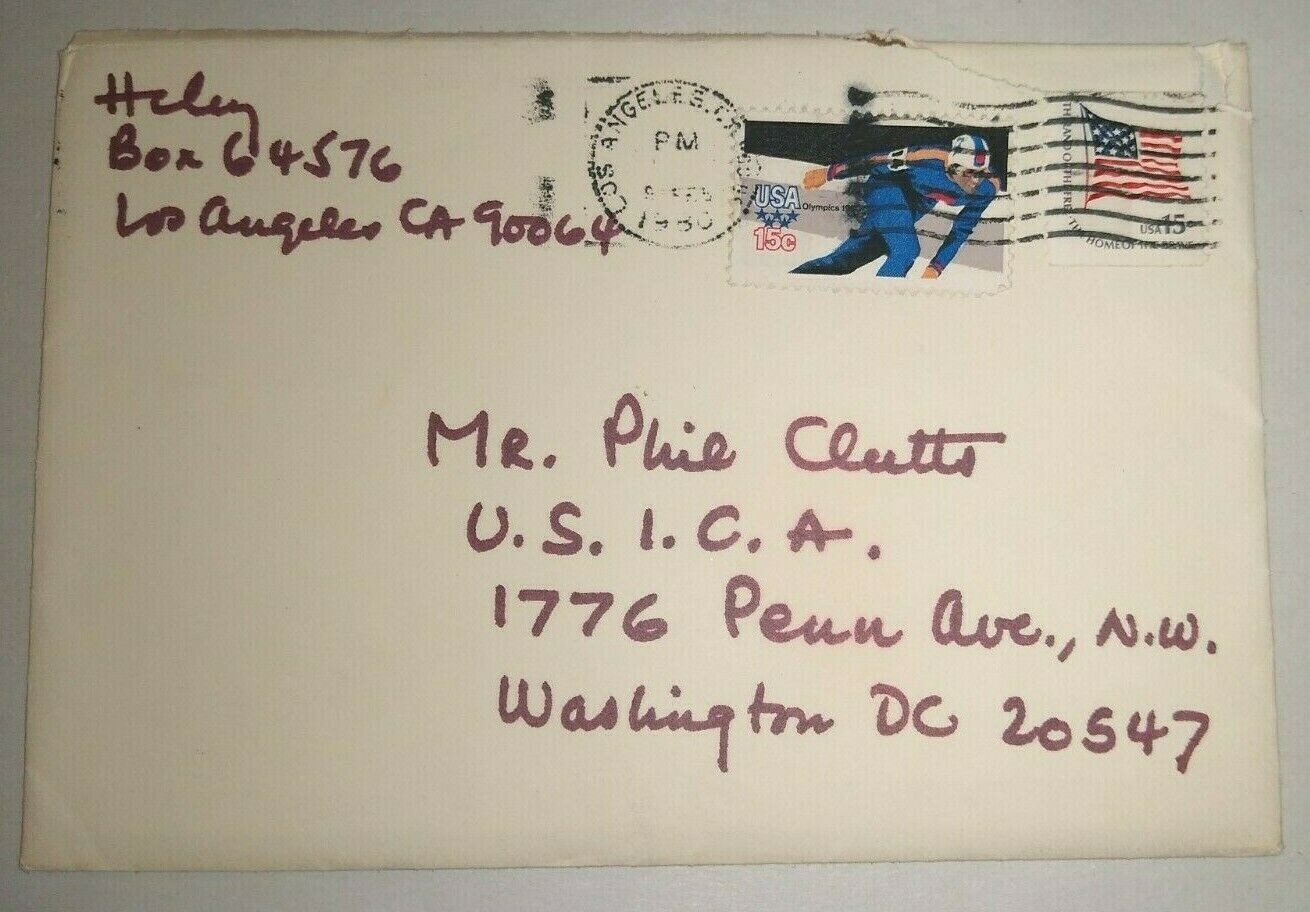 Haley
Box 64576
Los Angeles CA 90064
LOS ANGELES, CA
PM
1980
USA
Olympics
15c
TH AND OF THE FREE, THE HOME OF THE BRAVE
USA 15c
Mr. Phil Clutts
U.S.I.C.A.
1776 Penn Ave., N.W.
Washington DC 20547